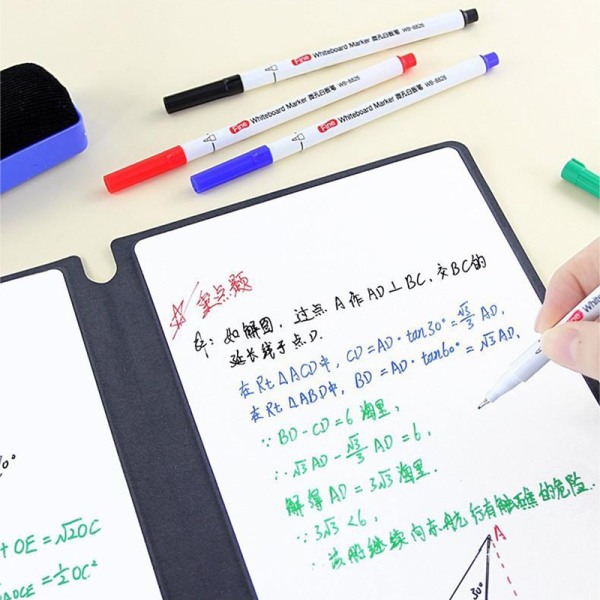 Fine Whiteboard Marker 微孔白板笔 WB-8826
Fine Whiteboard Marker 微孔白板笔 WB-8826
Fine Whiteboard Marker 微孔白板笔 WB-8826
重点题
如解图，过点A作AD⊥BC，交BC的
延长线于点D.
在Rt△ACD中，CD=AD·tan30°=√3/3 AD，
在Rt△ABD中，BD=AD·tan60°=√3AD，
∵BD-CD=6海里，
∴√3AD-√3/3 AD=6，
解得AD=3√3海里.
∵3√3<6，
∴该船继续向东航行有触礁的危险.
A
30°
+ OE = √2OC
= 1/2 OC²